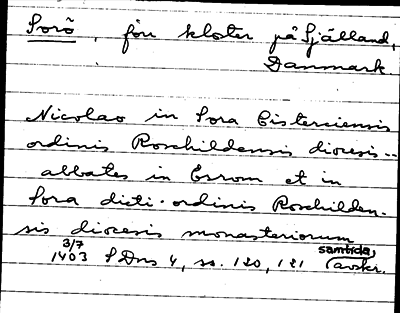 Sorö, förr kloster på Själland,
Danmark.
Nicolao in Sora Cisterciensis
ordinis Roschildensis diocesis --
abbates in Esrom et in
Sora dicti ordinis Roschilden-
sis diocesis monasteriorum
3/7 1403 SDns 4, ss. 120, 121 (samtida avskr.